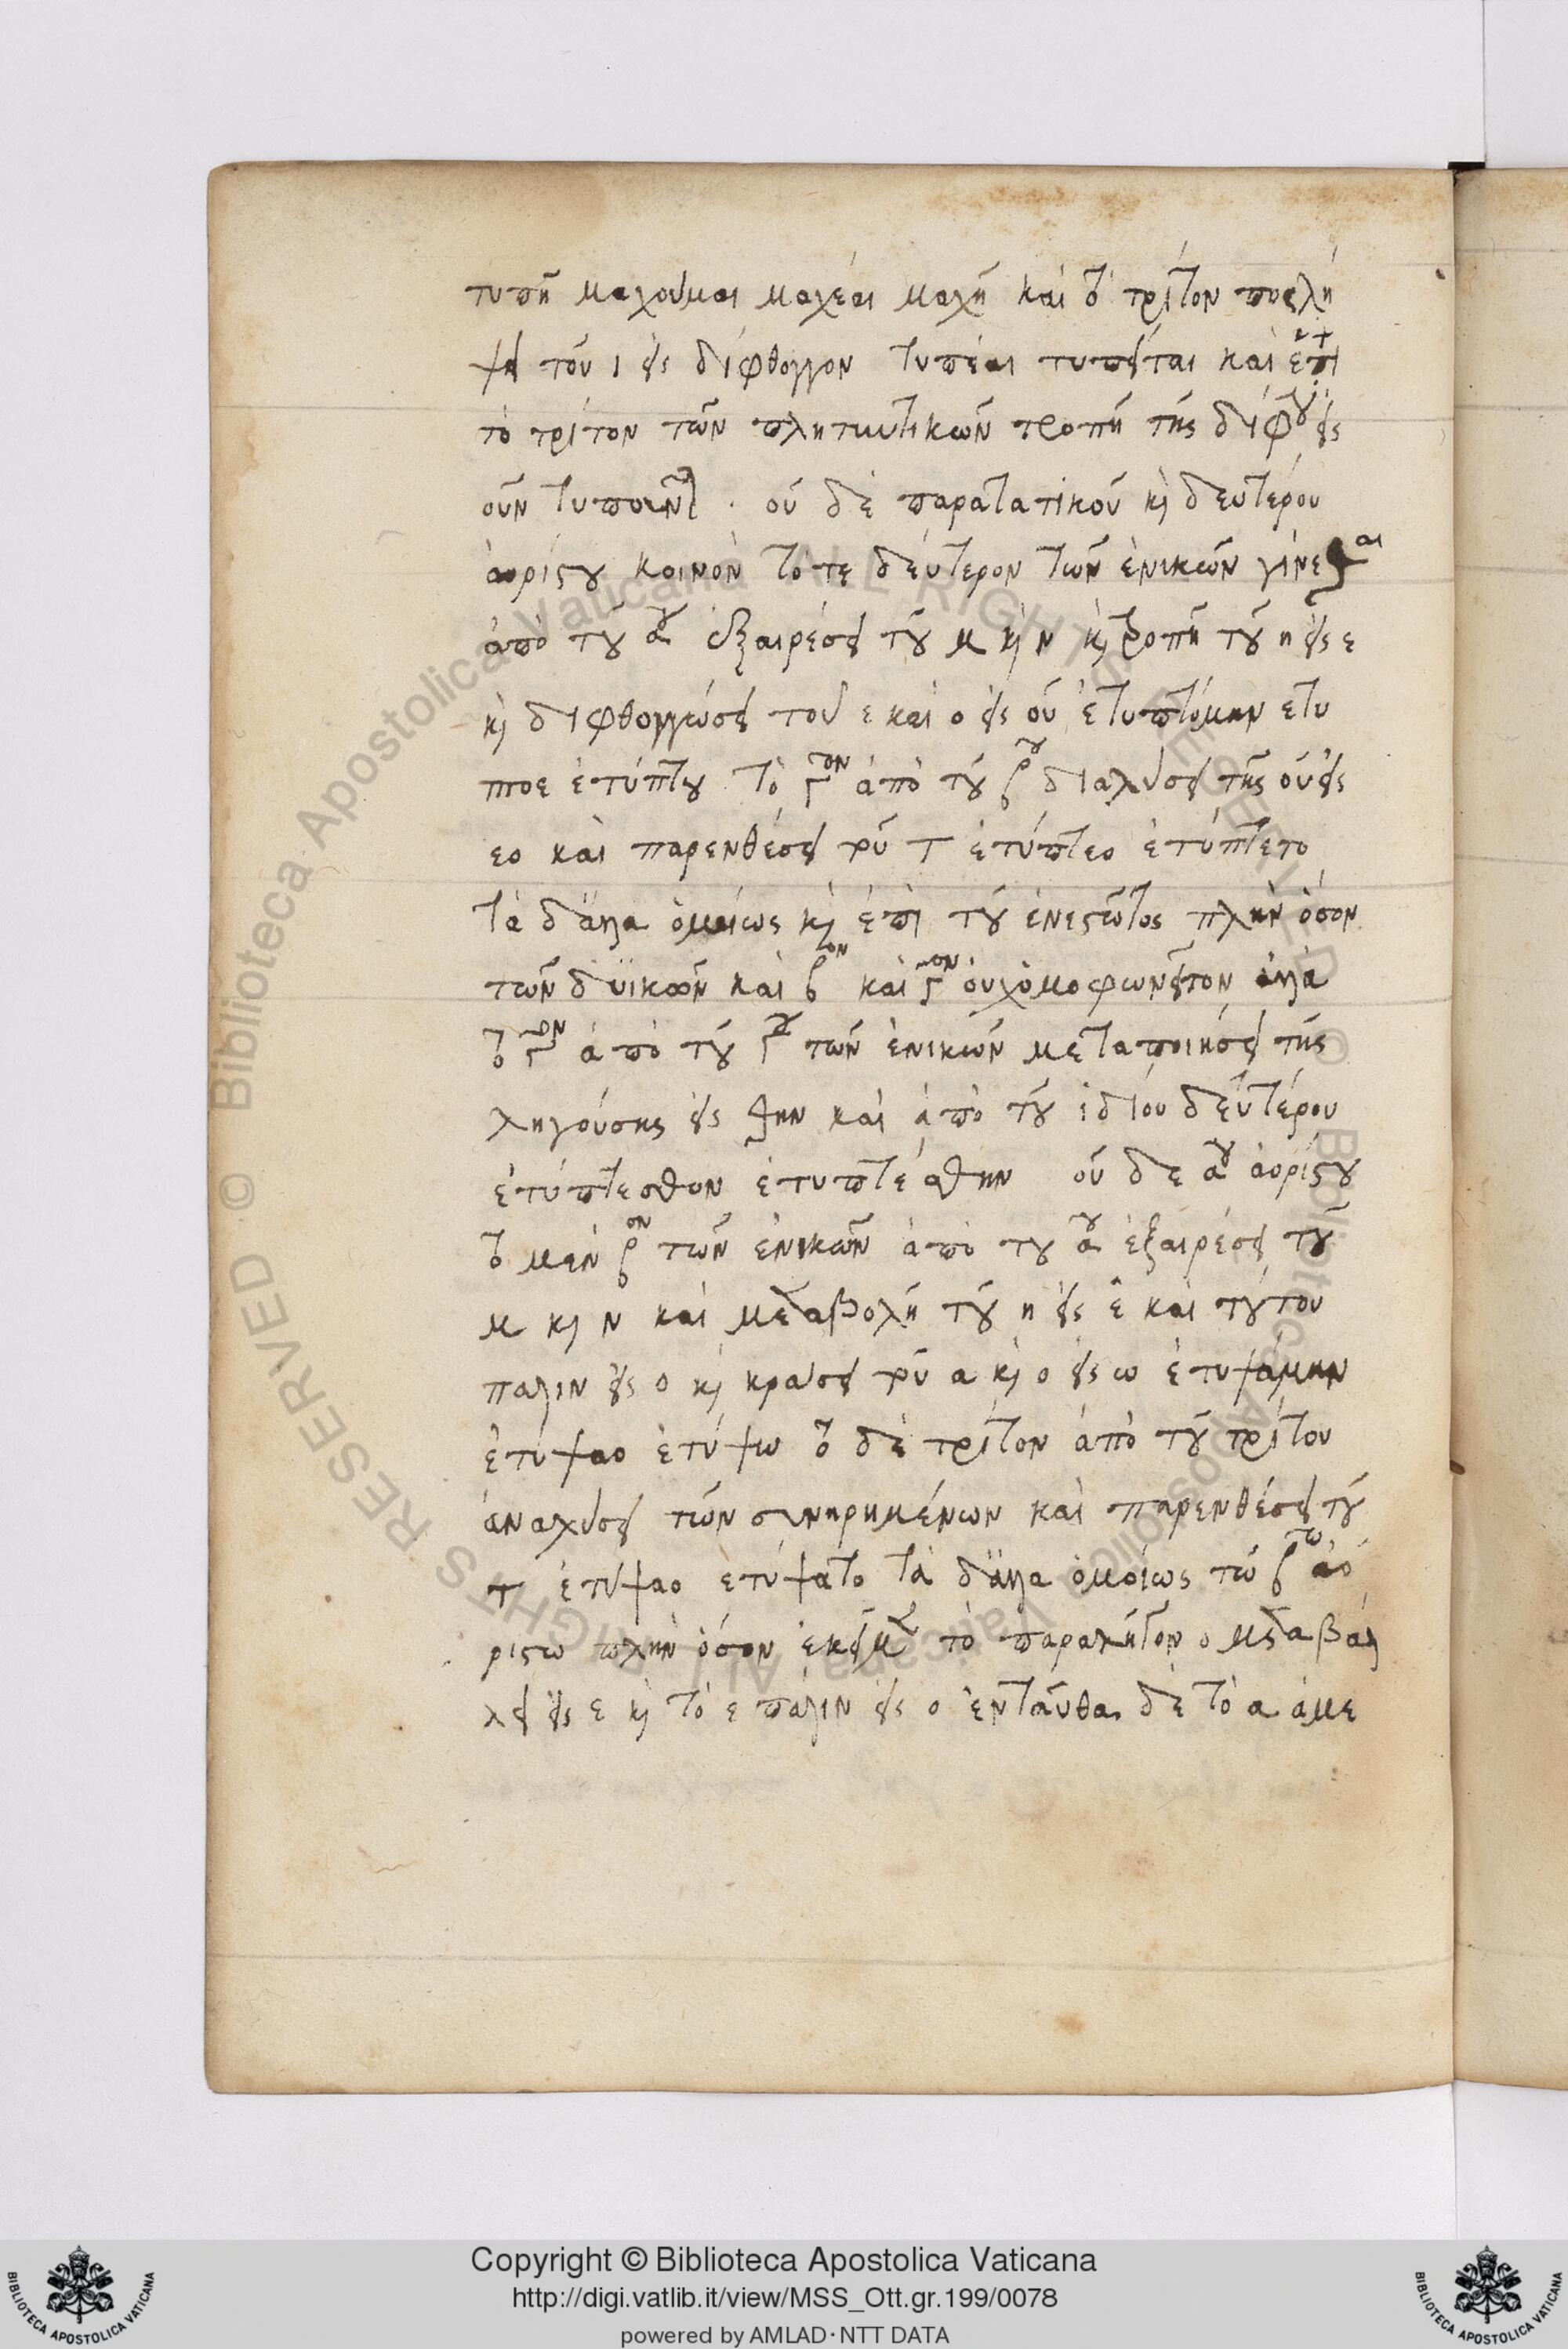 τυπῆ μαχοῦμαι μαχέαι μαχῆ καὶ τὸ τρίτον προσλή
ψει τοῦ ι εἰς δίφθογγον τυπέαι τυπεῖται καὶ ἐπὶ
τὸ τρίτον τῶν πληθυντικῶν τροπῇ τῆς διφθ εἰς
οῦν τυποῦντ · οῦ δὲ παρατατικοῦ κ δευτέρου
ἀορίστου κοινὸν τό τε δεύτερον τῶν ἑνικῶν γίνεται
ἀπὸ τοῦ αου ἐξαιρέσει τοῦ μ κ ν κ τροπῇ τοῦ η εἰς ε
κ διφθογγώσει τοῦ ε καὶ ο εἰς οὐ ἐτυπτόμην ετυ
πτοε ἐτύπτου τὸ γον ἀπὸ τοῦ βου διαλύσει τῆς οὐ εἰς
εο καὶ παρενθέσει τοῦ τ ἐτύπτεο ἐτύπτετο
τὰ δ ἄλλα ὁμοίως κ ἐπὶ τοῦ ἐνεστῶτος πλὴν ὅσον
τῶν δυϊκῶν καὶ βον καὶ γον οὐχ ὁμοφωνεῖτον ἀλλὰ
τὸ γον ἀπὸ τοῦ γου τῶν ἑνικῶν μεταποιήσει τῆς
ληγούσης εἰς σθην καὶ ἀπὸ τοῦ ἰδίου δευτέρου
ἐτύπτεσθον ἐτυπτέσθην οῦ δε αου ἀορίστου
τὸ μεν βον τῶν ἑνικῶν ἀπὸ του αου ἐξαιρέσει τοῦ
μ κ ν καὶ μεταβολῇ τοῦ η εἰς ε καὶ τούτου
παλιν εἰς ο κ κράσει τοῦ α κ ο εἰς ω ἐτυψάμην
ἐτύψαο ἐτύψω τὸ δὲ τρίτον ἀπὸ τοῦ τρίτου
ἀναλύσει τῶν συνηρημένων καὶ παρενθέσει τοῦ
τ ἐτύψαο ετύψατο τὰ δ ἄλλα ὁμοίως τῶ βω ἀο
ριστω πλὴν ὅσον ἐκεῖ μ τὸ παραλῆγον ο μεταβάλ
λει εἰς ε κ τὸ ε πάλιν εἰς ο ἐνταῦθα δὲ τὸ α ἀμε
Copyright © Biblioteca Apostolica Vaticana
http://digi.vatlib.it/view/MSS_Ott.gr.199/0078
powered by AMLAD·NTT DATA
BIBLIOTECA APOSTOLICA VATICANA
BIBLIOTECA APOSTOLICA VATICANA
© Biblioteca Apostolica Vaticana ALL RIGHTS RESERVED
© Biblioteca Apostolica Vaticana ALL RIGHTS RESERVED